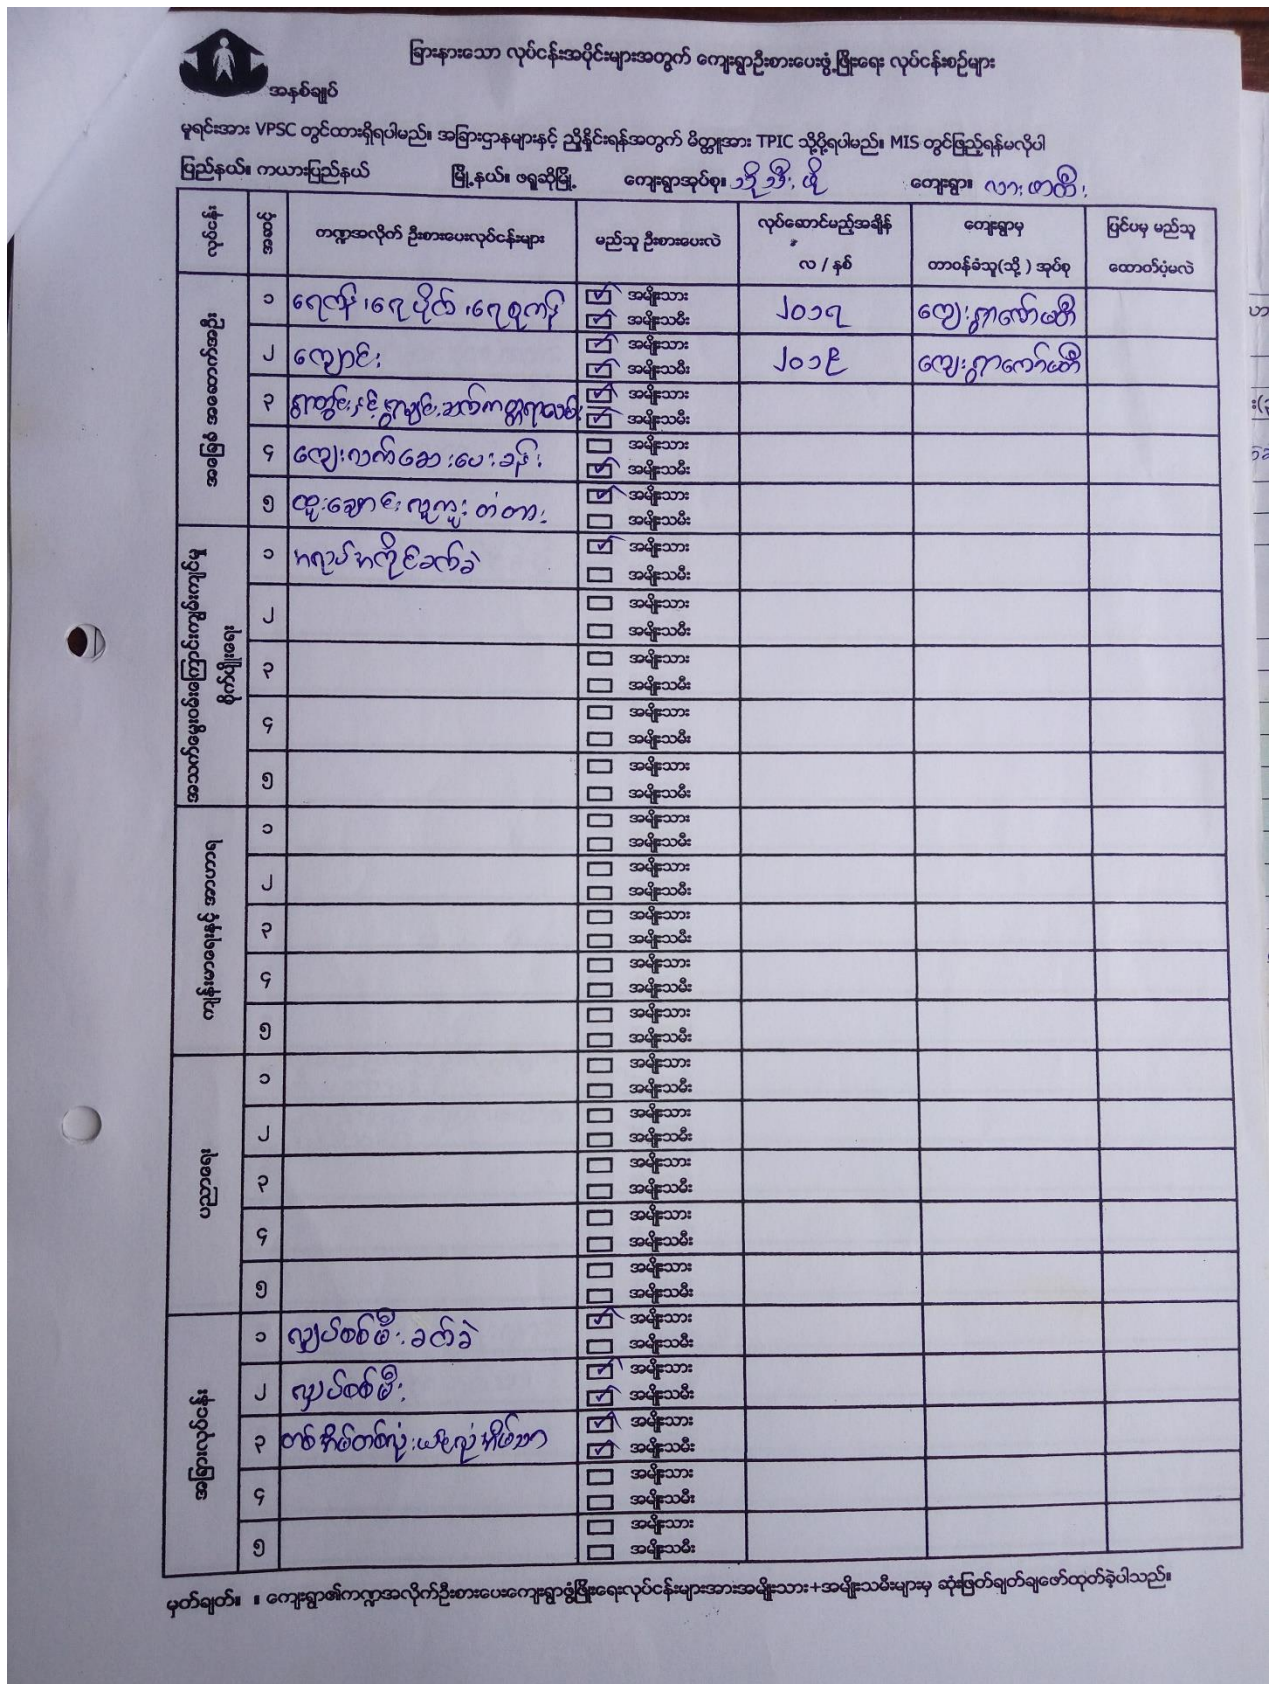 ခြားနားသော လုပ်ငန်းအပိုင်းများအတွက် ကျေးရွာဦးစားပေးဖွံ့ဖြိုးရေး လုပ်ငန်းစဉ်များ
အနှစ်ချုပ်
မူရင်းအား VPSC တွင်ထားရှိရပါမည်။ အခြားဌာနများနှင့် ညှိနှိုင်းရန်အတွက် မိတ္တူအား TPIC သို့ပို့ရပါမည်။ MIS တွင်ဖြည့်ရန်မလိုပါ
ပြည်နယ်။ ကယားပြည်နယ် မြို့နယ်။ ဖရူဆိုမြို့ ကျေးရွာအုပ်စု။ ကျေးရွာ။
လုပ်ငန်း အဆင့် ကဏ္ဍအလိုက် ဦးစားပေးလုပ်ငန်းများ မည်သူ ဦးစားပေးလဲ လုပ်ဆောင်မည့်အချိန် လ / နှစ် ကျေးရွာမှ တာဝန်ခံသူ(သို့) အုပ်စု ပြင်ပမှ မည်သူ ထောက်ပံ့မလဲ
အခြေခံ အဆောက်အဦး
၁ ရေကန်၊ရေပိုက်၊ အမျိုးသား ၂၀၁၇ ကျေးရွာကော်မတီ
အမျိုးသမီး
၂ ကျောင်း အမျိုးသား ၂၀၁၉ ကျေးရွာကော်မတီ
အမျိုးသမီး
၃ အမျိုးသား
အမျိုးသမီး
၄ ကျေးလက်ဆေးပေးခန်း အမျိုးသား
အမျိုးသမီး
၅ ထူးချောင်းလူကူးတံတား အမျိုးသား
အမျိုးသမီး
၁ အမျိုးသား
အမျိုးသမီး
၂ အမျိုးသား
အမျိုးသမီး
၃ အမျိုးသား
အမျိုးသမီး
၄ အမျိုးသား
အမျိုးသမီး
၅ အမျိုးသား
အမျိုးသမီး
ကျန်းမာရေးနှင့် အာဟာရ
၁ အမျိုးသား
အမျိုးသမီး
၂ အမျိုးသား
အမျိုးသမီး
၃ အမျိုးသား
အမျိုးသမီး
၄ အမျိုးသား
အမျိုးသမီး
၅ အမျိုးသား
အမျိုးသမီး
ပညာရေး
၁ အမျိုးသား
အမျိုးသမီး
၂ အမျိုးသား
အမျိုးသမီး
၃ အမျိုးသား
အမျိုးသမီး
၄ အမျိုးသား
အမျိုးသမီး
၅ အမျိုးသား
အမျိုးသမီး
အခြားလုပ်ငန်း
၁ လျှပ်စစ်မီးခက်ခဲ အမျိုးသား
အမျိုးသမီး
၂ လျှပ်စစ်မီး အမျိုးသား
အမျိုးသမီး
၃ တစ်အိမ်တစ်လုံးယင်လုံအိမ်သာ အမျိုးသား
အမျိုးသမီး
၄ အမျိုးသား
အမျိုးသမီး
၅ အမျိုးသား
အမျိုးသမီး
မှတ်ချတ်။ ။ ကျေးရွာ၏ကဏ္ဍအလိုက်ဦးစားပေးကျေးရွာဖွံ့ဖြိုးရေးလုပ်ငန်းများအားအမျိုးသား+အမျိုးသမီးများမှ ဆုံးဖြတ်ချတ်ချဖော်ထုတ်ခဲ့ပါသည်။